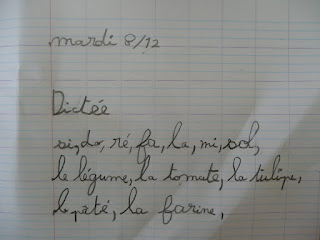 mardi 8/12
Dictée
si, do, ré, fa, la, mi, sol,
le légume, la tomate, la tulipe,
le pâté, la farine,